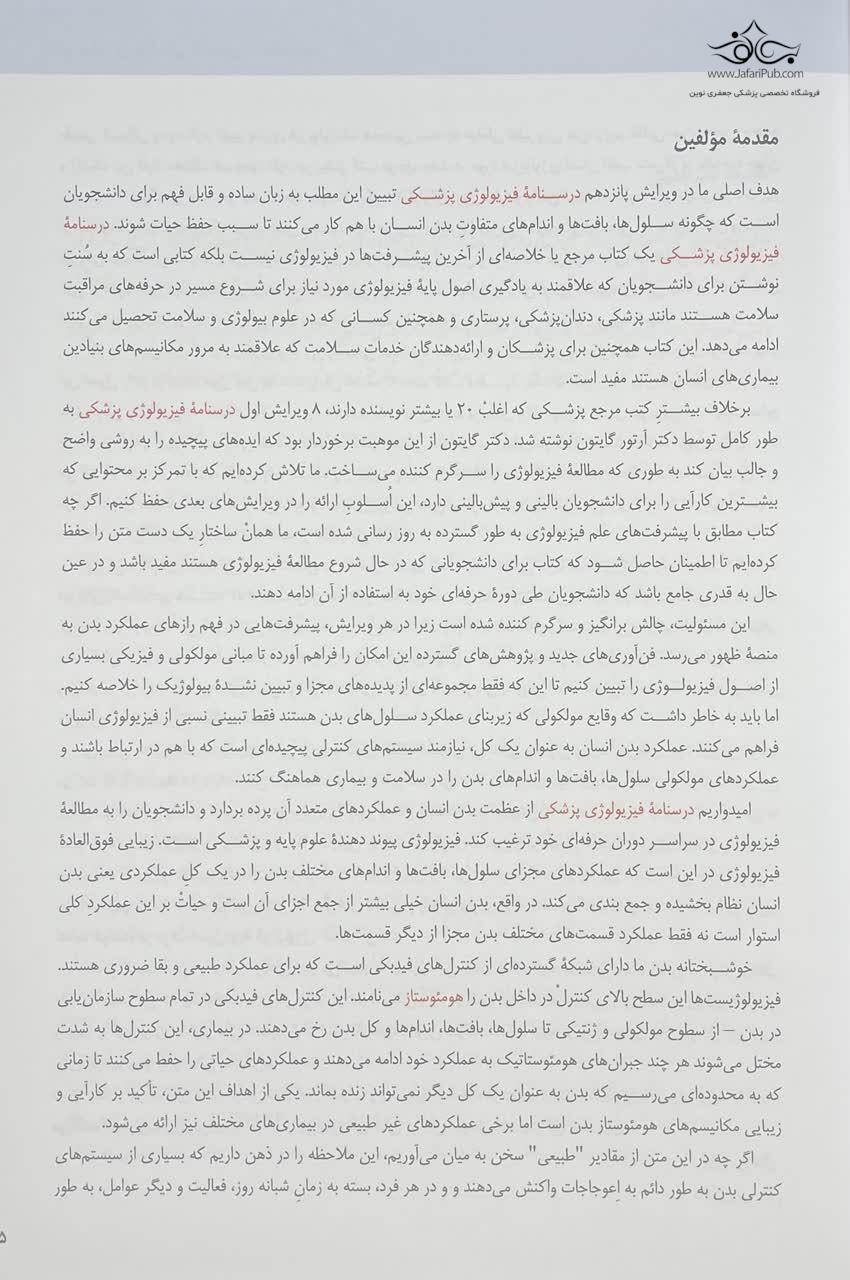 جعفری
www.JafariPub.com
فروشگاه تخصصی پزشکی جعفری نوین
مقدمهٔ مؤلفین
هدف اصلی ما در ویرایش پانزدهم درسنامهٔ فیزیولوژی پزشکی تبیین این مطلب به زبان ساده و قابل فهم برای دانشجویان
است که چگونه سلول‌ها، بافت‌ها و اندام‌های متفاوتِ بدن انسان با هم کار می‌کنند تا سبب حفظ حیات شوند. درسنامهٔ
فیزیولوژی پزشکی یک کتاب مرجع یا خلاصه‌ای از آخرین پیشرفت‌ها در فیزیولوژی نیست بلکه کتابی است که به سُنتِ
نوشتن برای دانشجویان که علاقمند به یادگیری اصول پایهٔ فیزیولوژی مورد نیاز برای شروع مسیر در حرفه‌های مراقبت
سلامت هستند مانند پزشکی، دندان‌پزشکی، پرستاری و همچنین کسانی که در علوم بیولوژی و سلامت تحصیل می‌کنند
ادامه می‌دهد. این کتاب همچنین برای پزشکان و ارائه‌دهندگان خدمات سلامت که علاقمند به مرور مکانیسم‌های بنیادین
بیماری‌های انسان هستند مفید است.
برخلاف بیشترِ کتب مرجع پزشکی که اغلبْ ۲۰ یا بیشتر نویسنده دارند، ۸ ویرایش اول درسنامهٔ فیزیولوژی پزشکی به
طور کامل توسط دکتر آرتور گایتون نوشته شد. دکتر گایتون از این موهبت برخوردار بود که ایده‌های پیچیده را به روشی واضح
و جالب بیان کند به طوری که مطالعهٔ فیزیولوژی را سرگرم کننده می‌ساخت. ما تلاش کرده‌ایم که با تمرکز بر محتوایی که
بیشترین کارآیی را برای دانشجویان بالینی و پیش‌بالینی دارد، این اُسلوبِ ارائه را در ویرایش‌های بعدی حفظ کنیم. اگر چه
کتاب مطابق با پیشرفت‌های علم فیزیولوژی به طور گسترده به روز رسانی شده است، ما همانْ ساختارِ یک دست متن را حفظ
کرده‌ایم تا اطمینان حاصل شود که کتاب برای دانشجویانی که در حال شروع مطالعهٔ فیزیولوژی هستند مفید باشد و در عین
حال به قدری جامع باشد که دانشجویان طی دورهٔ حرفه‌ای خود به استفاده از آن ادامه دهند.
این مسئولیت، چالش برانگیز و سرگرم کننده شده است زیرا در هر ویرایش، پیشرفت‌هایی در فهم رازهای عملکرد بدن به
منصهٔ ظهور می‌رسد. فن‌آوری‌های جدید و پژوهش‌های گسترده این امکان را فراهم آورده تا مبانی مولکولی و فیزیکی بسیاری
از اصول فیزیولوژی را تبیین کنیم تا این که فقط مجموعه‌ای از پدیده‌های مجزا و تبیین نشدهٔ بیولوژیک را خلاصه کنیم.
اما باید به خاطر داشت که وقایع مولکولی که زیربنای عملکرد سلول‌های بدن هستند فقط تبیینی نسبی از فیزیولوژی انسان
فراهم می‌کنند. عملکرد بدن انسان به عنوان یک کل، نیازمند سیستم‌های کنترلی پیچیده‌ای است که با هم در ارتباط باشند و
عملکردهای مولکولی سلول‌ها، بافت‌ها و اندام‌های بدن را در سلامت و بیماری هماهنگ کنند.
امیدواریم درسنامهٔ فیزیولوژی پزشکی از عظمت بدن انسان و عملکردهای متعدد آن پرده بردارد و دانشجویان را به مطالعهٔ
فیزیولوژی در سراسر دوران حرفه‌ای خود ترغیب کند. فیزیولوژی پیوند دهندهٔ علوم پایه و پزشکی است. زیبایی فوق‌العادهٔ
فیزیولوژی در این است که عملکردهای مجزای سلول‌ها، بافت‌ها و اندام‌های مختلف بدن را در یک کلِ عملکردی یعنی بدن
انسان نظام بخشیده و جمع بندی می‌کند. در واقع، بدن انسان خیلی بیشتر از جمع اجزای آن است و حیاتْ بر این عملکردِ کلی
استوار است نه فقط عملکرد قسمت‌های مختلف بدن مجزا از دیگر قسمت‌ها.
خوشبختانه بدن ما دارای شبکهٔ گسترده‌ای از کنترل‌های فیدبکی است که برای عملکرد طبیعی و بقا ضروری هستند.
فیزیولوژیست‌ها این سطح بالای کنترلْ در داخل بدن را هومئوستاز می‌نامند. این کنترل‌های فیدبکی در تمام سطوح سازمان‌یابی
در بدن – از سطوح مولکولی و ژنتیکی تا سلول‌ها، بافت‌ها، اندام‌ها و کل بدن رخ می‌دهند. در بیماری، این کنترل‌ها به شدت
مختل می‌شوند هر چند جبران‌های هومئوستاتیک به عملکرد خود ادامه می‌دهند و عملکردهای حیاتی را حفظ می‌کنند تا زمانی
که به محدوده‌ای می‌رسیم که بدن به عنوان یک کل دیگر نمی‌تواند زنده بماند. یکی از اهداف این متن، تأکید بر کارآیی و
زیبایی مکانیسم‌های هومئوستاز بدن است اما برخی عملکردهای غیر طبیعی در بیماری‌های مختلف نیز ارائه می‌شود.
اگر چه در این متن از مقادیر "طبیعی" سخن به میان می‌آوریم، این ملاحظه را در ذهن داریم که بسیاری از سیستم‌های
کنترلی بدن به طور دائم به اِعوجاجات واکنش می‌دهند و و در هر فرد، بسته به زمانِ شبانه روز، فعالیت و دیگر عوامل، به طور
۵